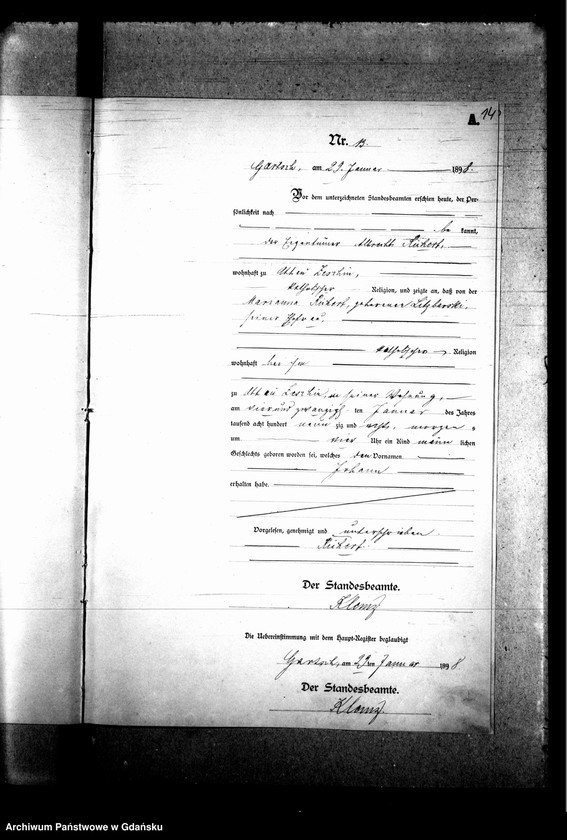 A.
14
Nr. 13.
Gartsch, am 29. Januar 1898.
Vor dem unterzeichneten Standesbeamten erschien heute, der Per-
sönlichkeit nach
be kannt,
der Eigentümer Albrecht
wohnhaft zu
katholischer Religion, und zeigte an, daß von der
Marianna geborenen
seiner Ehefrau,
katholischer Religion
wohnhaft bei ihm
zu in seiner Wohnung,
am vierundzwanzigsten Januar des Jahres
tausend acht hundert neun zig und acht, morgens
um vier Uhr ein Kind männ lichen
Geschlechts geboren worden sei, welches den Vornamen
Johann
erhalten habe.
Vorgelesen, genehmigt und unterschrieben
Der Standesbeamte.
Klomz
Die Uebereinstimmung mit dem Haupt-Register beglaubigt
Gartsch, am 29 ten Januar 1898
Der Standesbeamte.
Klomz.
Archiwum Państwowe w Gdańsku